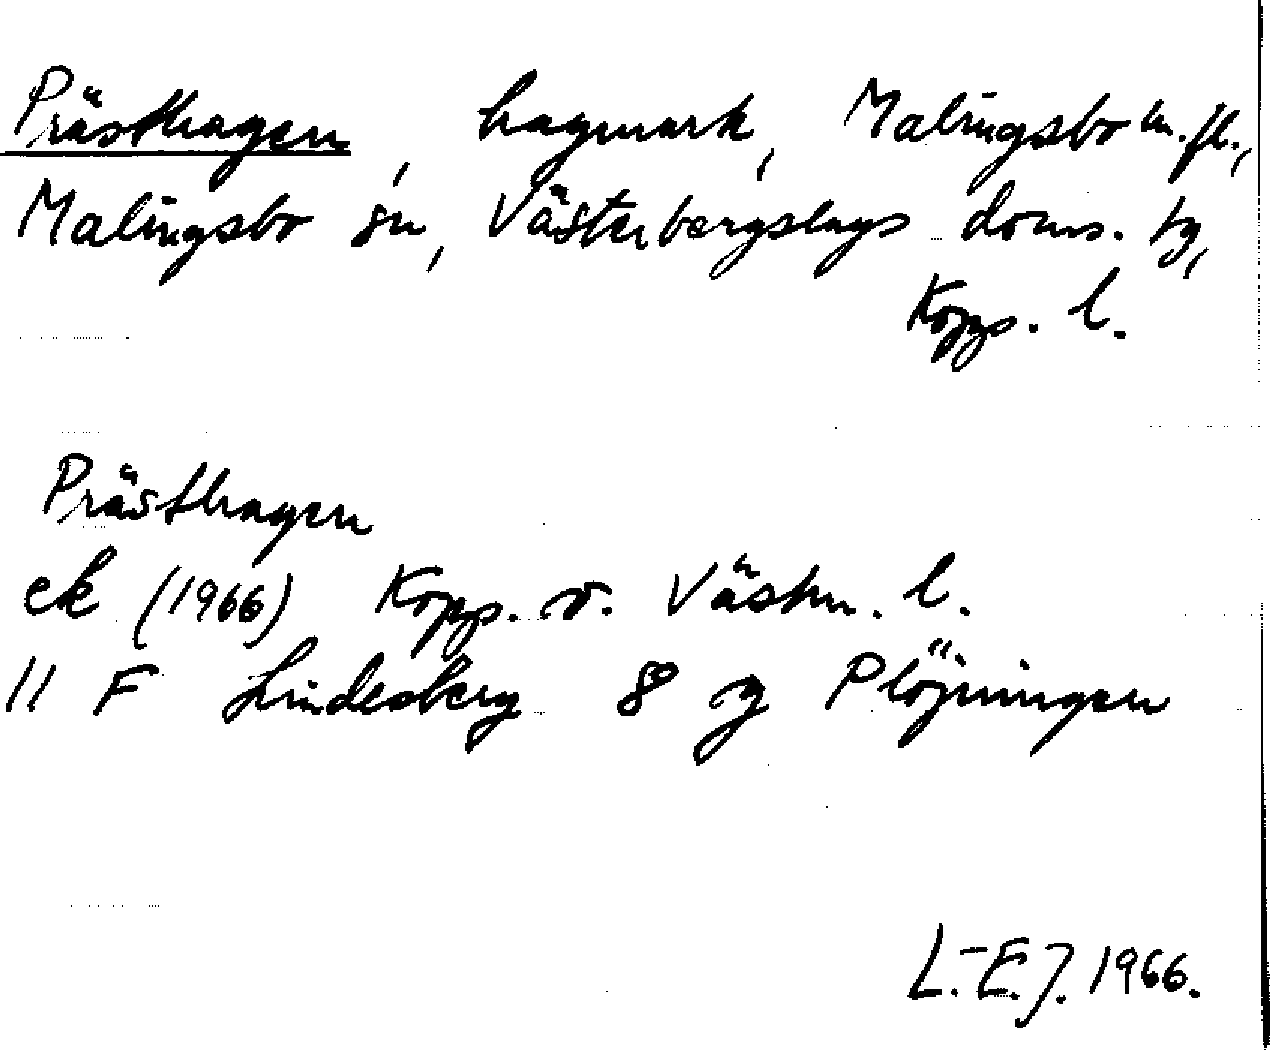 Prästhagen, hagmark, Malingsbo m.fl.,
Malingsbo sn, Västerbergslags doms. tg,
Kopps. l.
Prästhagen
ek (1966) Kopps. o. Västm. l.
11 F Lindesberg 8 g Plöjningen
L.-E.J. 1966.